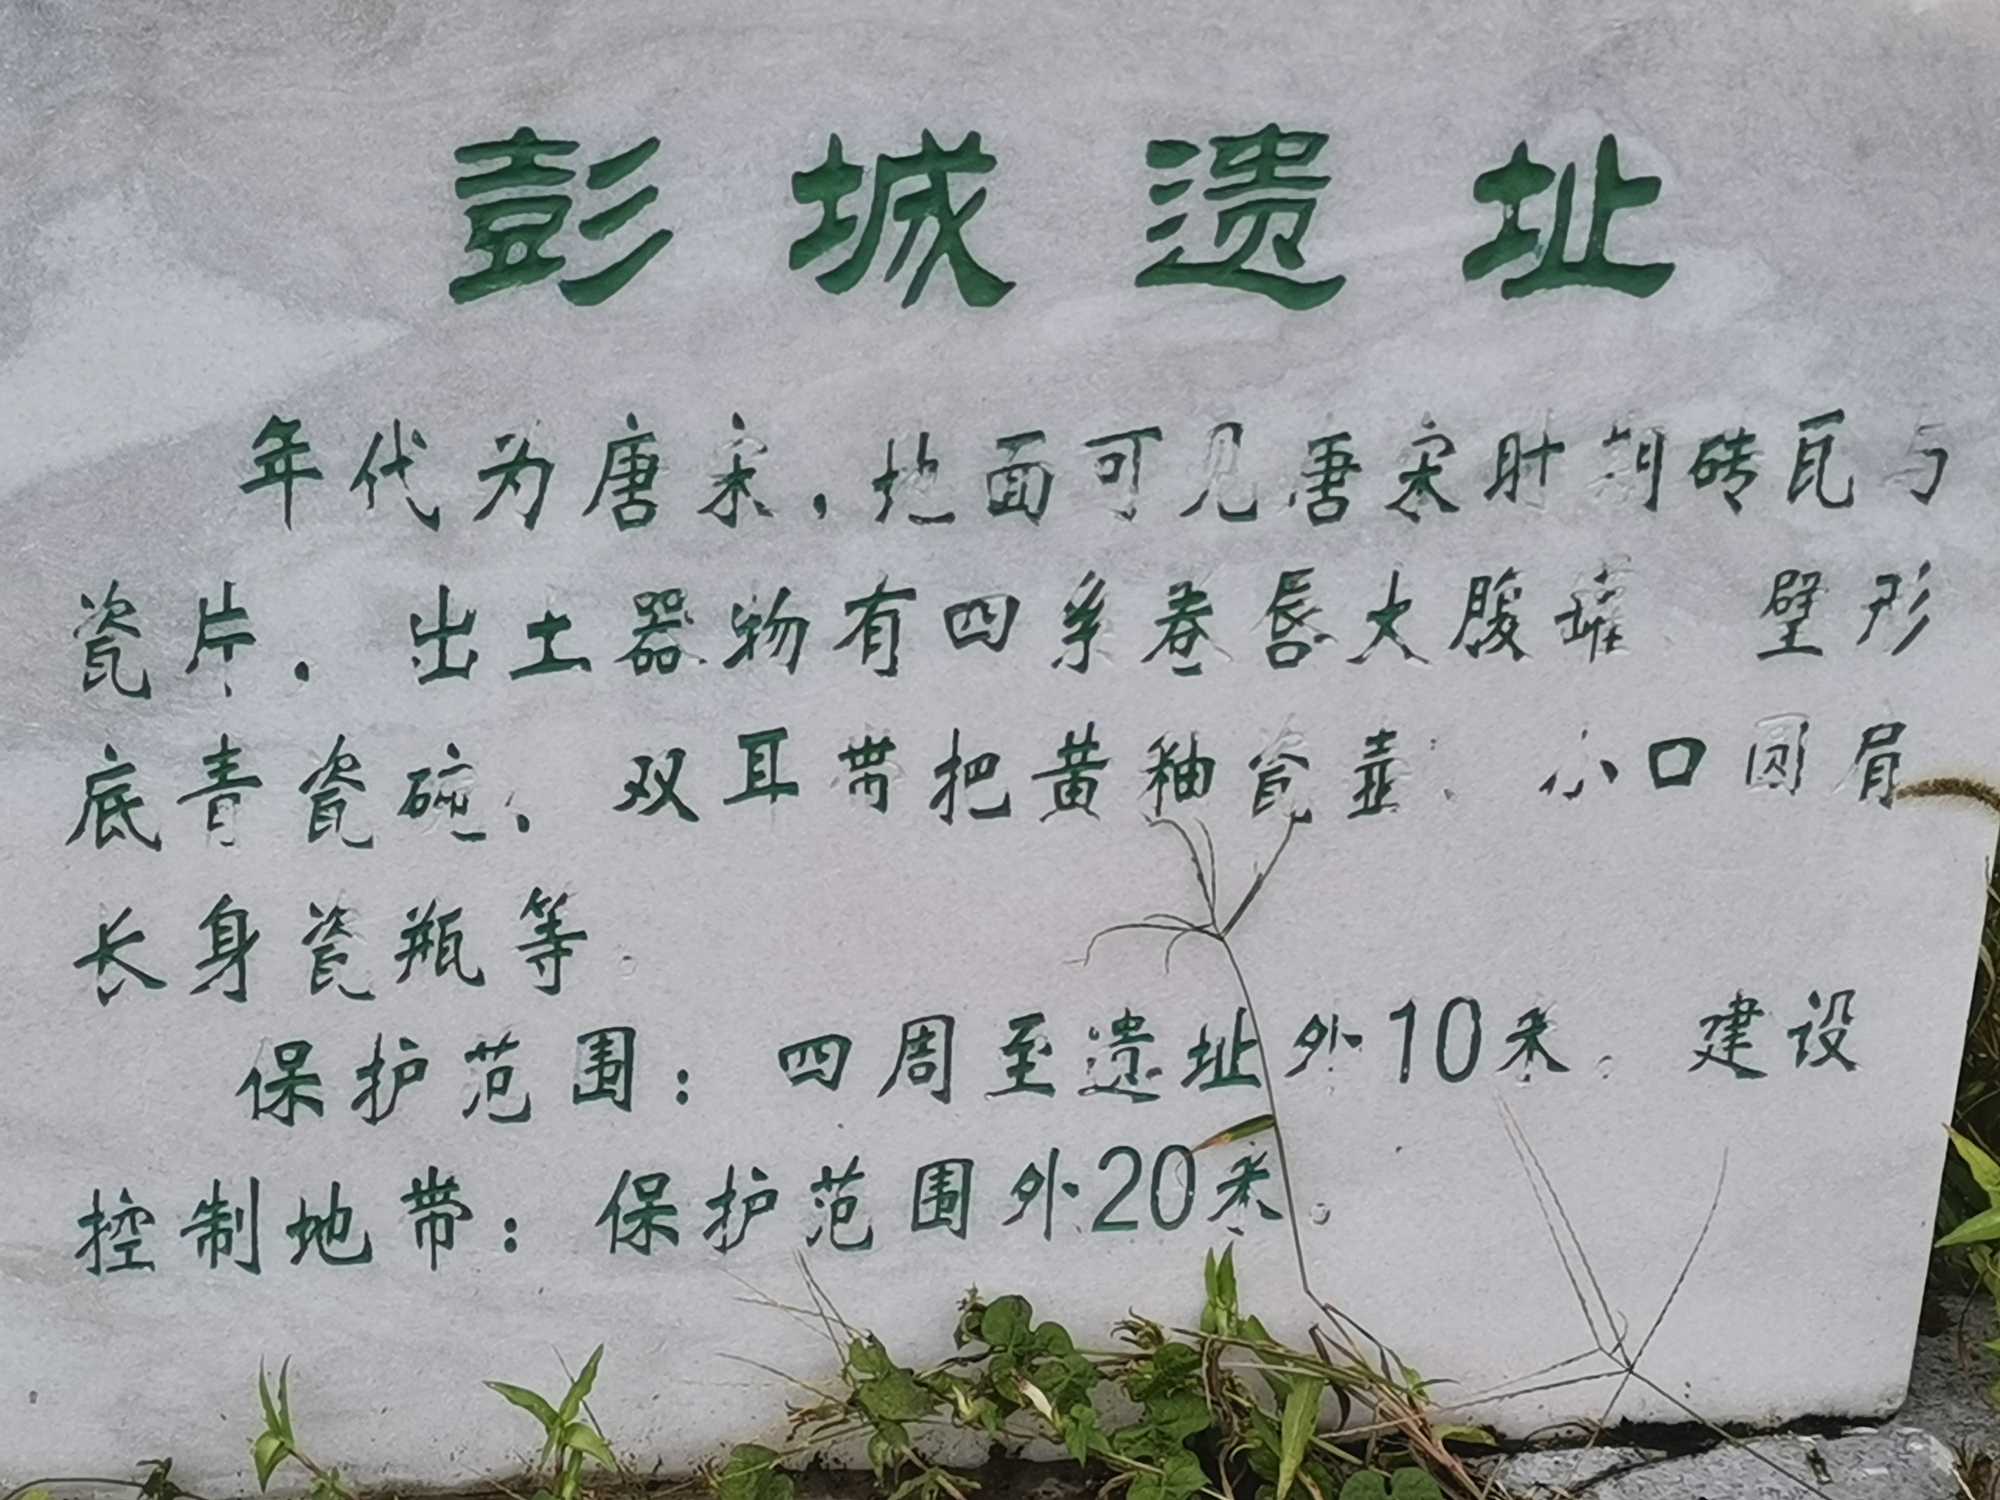 彭城遗址
年代为唐宋，地面可见唐宋时期砖瓦与
瓷片。出土器物有四系卷唇大腹罐、壁形
底青瓷碗、双耳带把黄釉瓷壶、小口圆肩
长身瓷瓶等。
保护范围：四周至遗址外10米。建设
控制地带：保护范围外20米。